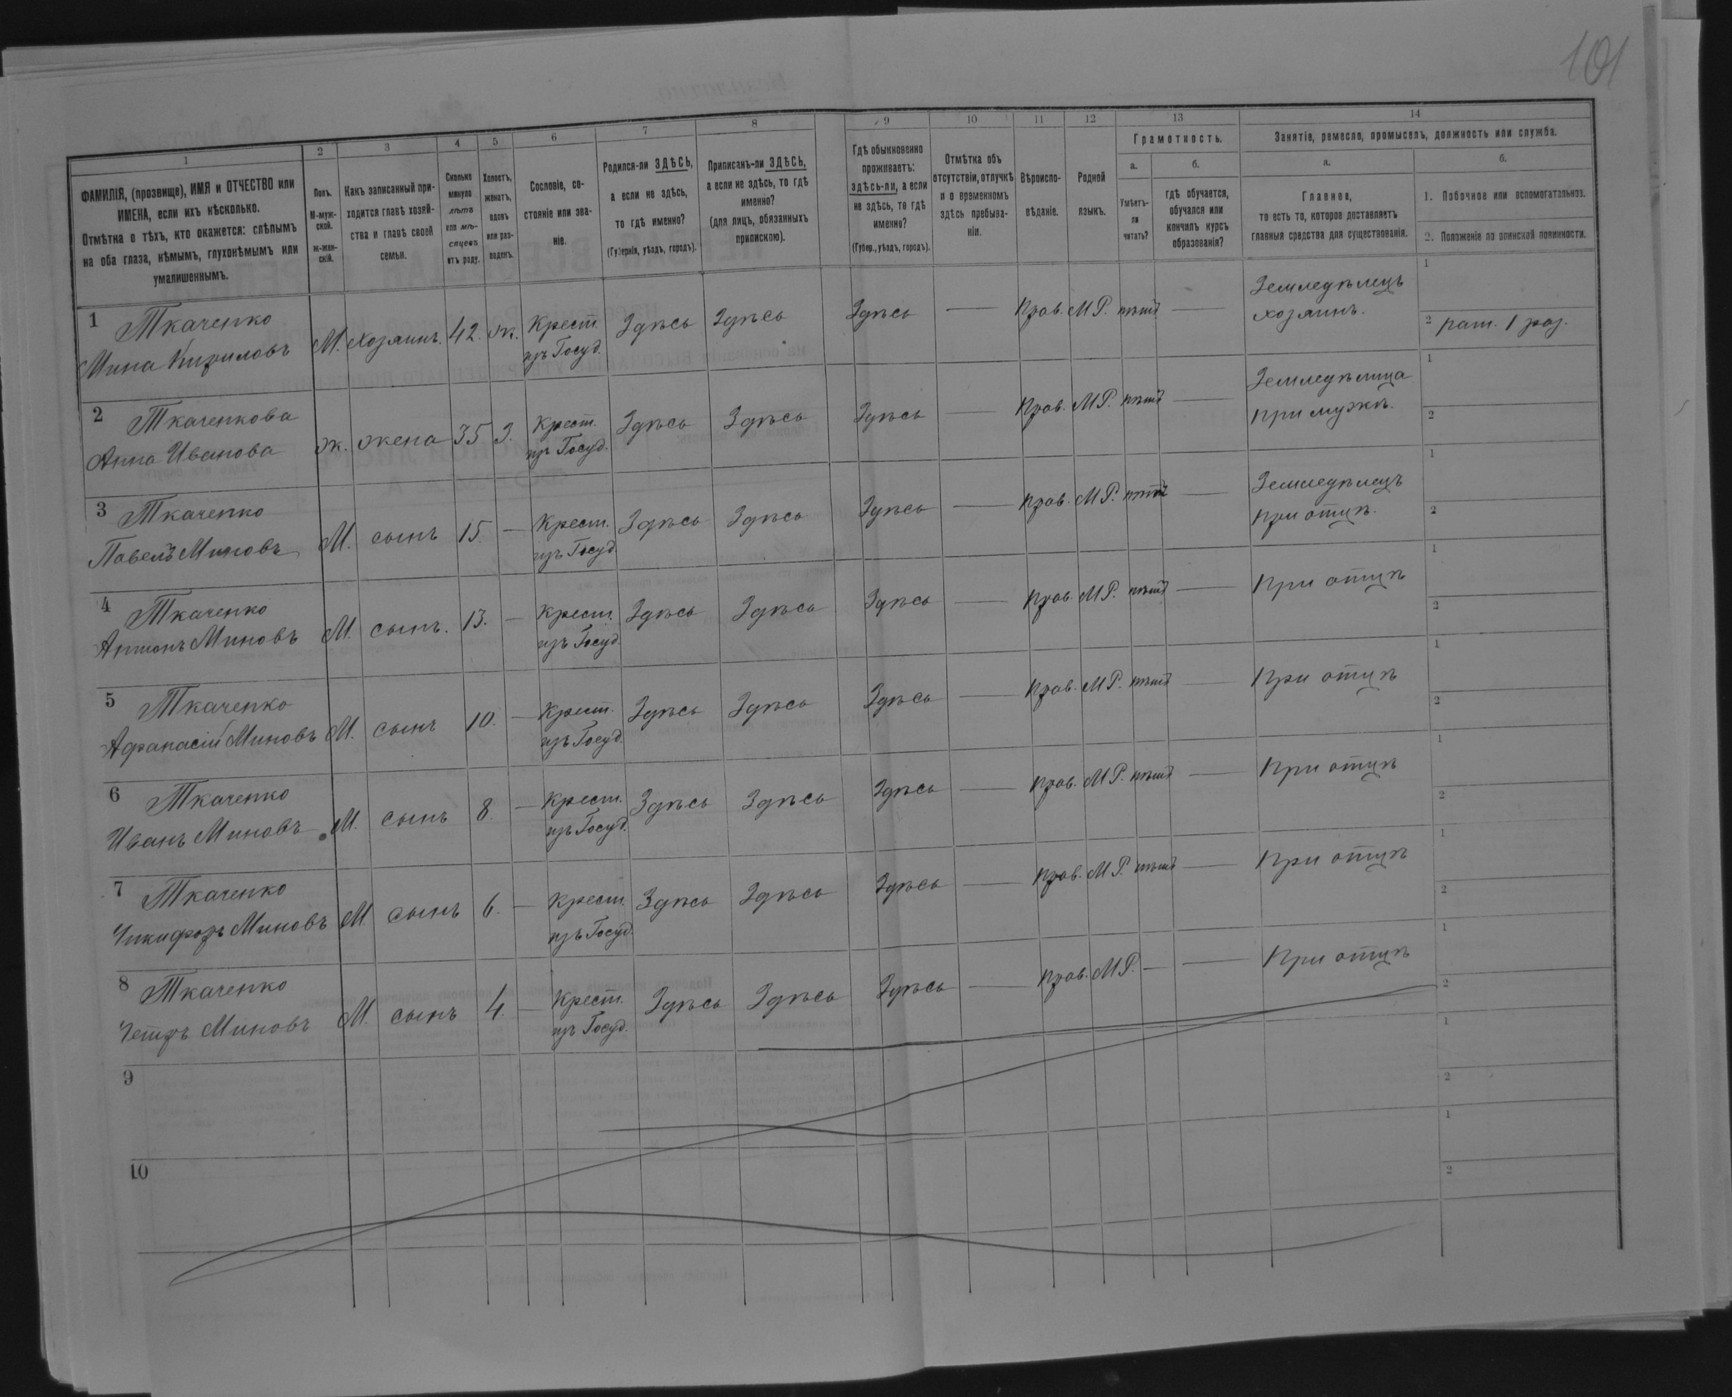 101
1
2
3
4
5
6
7
8
9
10
11
12
13
14
ФАМИЛІЯ, (прозвище), ИМЯ и ОТЧЕСТВО или
ИМЕНА, если ихъ нѣсколько.
Отмѣтка о тѣхъ, кто окажется: слѣпымъ
на оба глаза, нѣмымъ, глухонѣмымъ или
умалишеннымъ.
Полъ.
М-муж-
ской.
Ж-жен-
скій.
Какъ записанный при-
ходится главѣ хозяй-
ства и главѣ своей
семьи.
Сколько
минуло
лѣтъ
или мѣ-
сяцевъ
отъ роду.
Холостъ,
женатъ,
вдовъ
или раз-
веденъ.
Сословіе, со-
стояніе или зва-
ніе.
Родился-ли ЗДѢСЬ,
а если не здѣсь,
то гдѣ именно?
(Губернія, уѣздъ, городъ).
Приписанъ-ли ЗДѢСЬ,
а если не здѣсь, то гдѣ
именно?
(для лицъ, обязанныхъ
припискою).
Гдѣ обыкновенно
проживаетъ:
здѣсь-ли, а если
не здѣсь, то гдѣ
именно?
(Губер., уѣздъ, городъ).
Отмѣтка объ
отсутствіи, отлучкѣ
и о временномъ
здѣсь пребыва-
ніи.
Вѣроиспо-
вѣданіе.
Родной
языкъ.
Грамотность.
а.
б.
Умѣетъ-
ли
читать?
гдѣ обучается,
обучался или
кончилъ курсъ
образованія?
Занятіе, ремесло, промыселъ, должность или служба.
а.
б.
Главное,
то есть то, которое доставляетъ
главныя средства для существованія.
1. Побочное или вспомогательное.
2. Положеніе по воинской повинности.
1 Ткаченко
Мина Кириловъ М. хозяинъ. 42. ж. Крест. изъ Госуд. Здѣсь Здѣсь Здѣсь — Прав. М.Р. нѣтъ — Земледѣлецъ хозяинъ. 1
2 рат. 1 раз.
2 Ткаченкова
Анна Иванова ж. жена 35 З. Крест. изъ Госуд. Здѣсь Здѣсь Здѣсь — Прав. М.Р. нѣтъ — Земледѣлица при мужѣ. 1
2
3 Ткаченко
Павелъ Миновъ М. сынъ 15. — Крест. изъ Госуд. Здѣсь Здѣсь Здѣсь — Прав. М.Р. нѣтъ — Земледѣлецъ при отцѣ. 1
2
4 Ткаченко
Антонъ Миновъ М. сынъ. 13. — Крест. изъ Госуд. Здѣсь Здѣсь Здѣсь — Прав. М.Р. нѣтъ — При отцѣ 1
2
5 Ткаченко
Афанасій Миновъ М. сынъ 10. — Крест. изъ Госуд. Здѣсь Здѣсь Здѣсь — Прав. М.Р. нѣтъ — При отцѣ 1
2
6 Ткаченко
Иванъ Миновъ М. сынъ 8. — Крест. изъ Госуд. Здѣсь Здѣсь Здѣсь — Прав. М.Р. нѣтъ — При отцѣ 1
2
7 Ткаченко
Никифоръ Миновъ М. сынъ 6. — Крест. изъ Госуд. Здѣсь Здѣсь Здѣсь — Прав. М.Р. нѣтъ — При отцѣ 1
2
8 Ткаченко
Петръ Миновъ М. сынъ 4. — Крест. изъ Госуд. Здѣсь Здѣсь Здѣсь — Прав. М.Р. — — При отцѣ 1
2
9
1
2
10
1
2